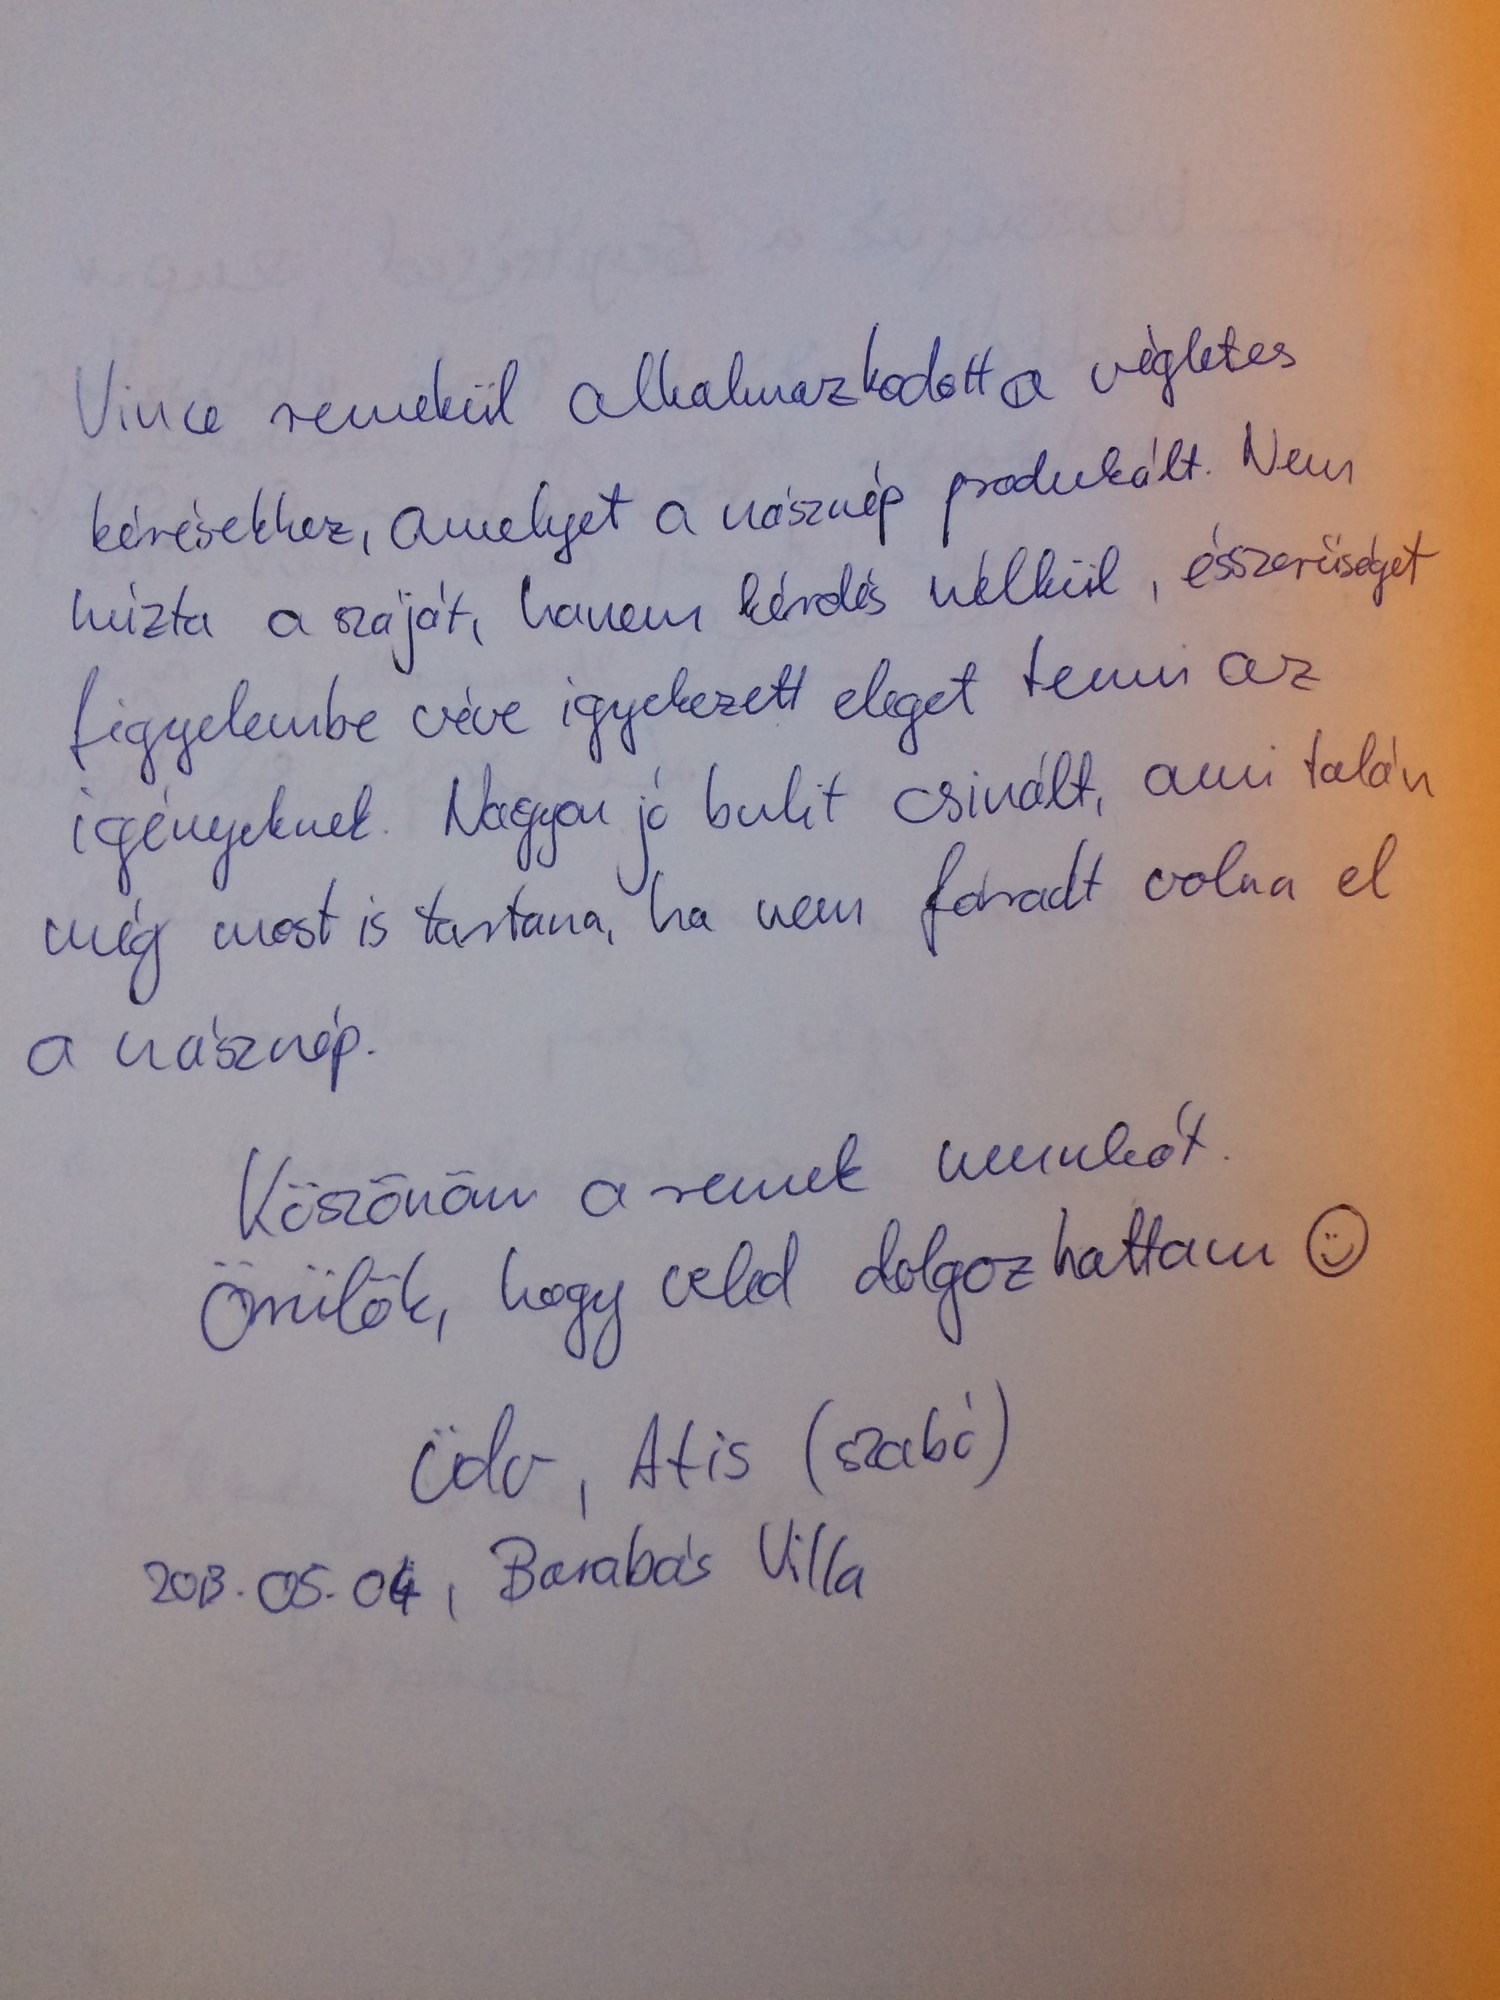 Vince remekül alkalmazkodott a végletes
kérésekhez, amelyet a násznép produkált. Nem
húzta a száját, hanem kérdés nélkül, ésszerűséget
figyelembe véve igyekezett eleget tenni az
igényeknek. Nagyon jó bulit csinált, ami talán
még most is tartana, ha nem fáradt volna el
a násznép.
Köszönöm a remek munkát.
Örülök, hogy veled dolgozhattam ☺
Üdv, Atis (szabó)
2013.05.04, Barabás Villa